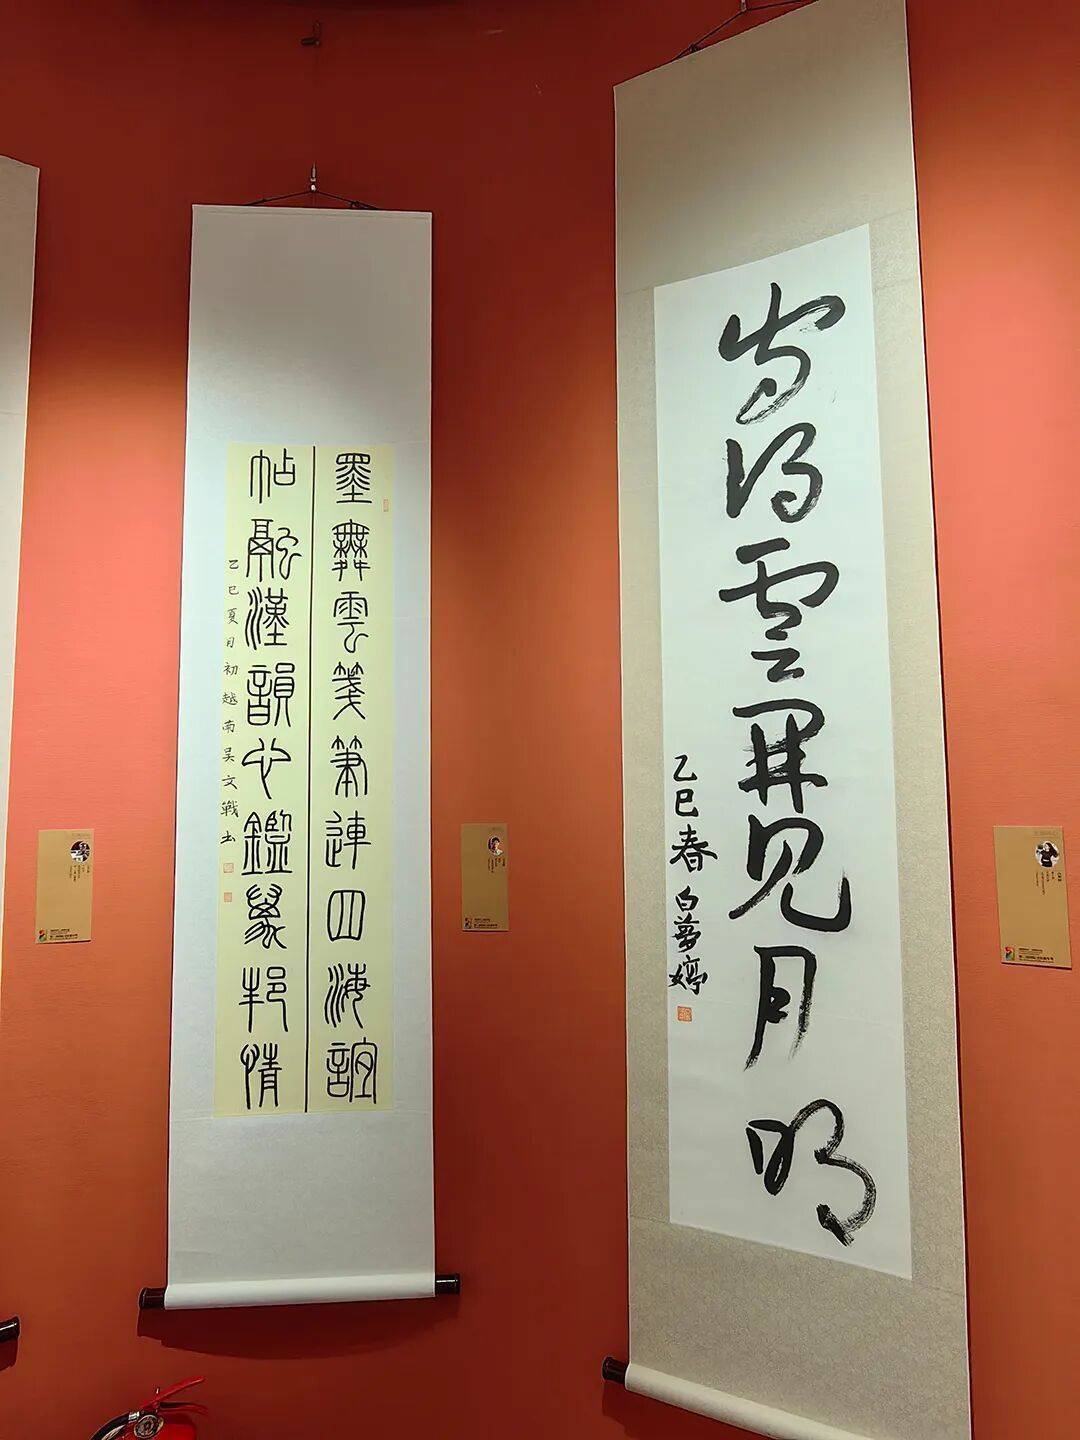 守得雲開見月明
乙巳春白夢婷
墨舞雲箋筆連四海誼
帖融漢韻心鑑萬邦情
乙巳夏月初越南吴文戰书